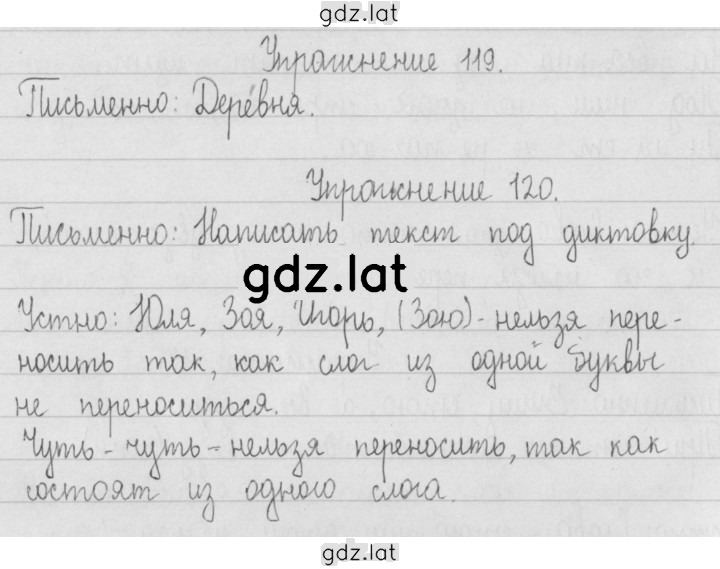 gdz.lat
Упражнение 119.
Письменно: Дере́вня.
Упражнение 120.
Письменно: Написать текст под диктовку.
gdz.lat
Устно: Юля, Зоя, Игорь, (Зою) - нельзя пере-
носить так, как слог из одной буквы
не переноситься.
Чуть - чуть - нельзя переносить, так как
состоят из одного слога.
gdz.lat